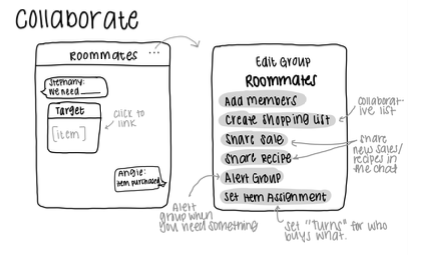 Collaborate
Roommates ...
Stephany:
We need ____
Target
[item]
click to
link
Angie:
Item purchased
Edit Group
Roommates
Add members
Create shopping list
Share sale
Share Recipe
Alert Group
Set Item Assignment
collaborat-
ive list
share
new sales/
recipes in
the chat
Alert
group when
you need something
set "turns" for who
buys what.